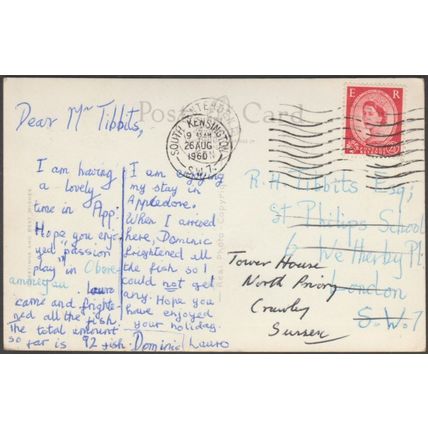 Dear Mr Tibbits,
I am having
a lovely
time in App.
Hope you enjo
yed "passion
play" in Obore
ameugau. Lauro
came and frighte
ned all the fish.
The total amount
so far is 92 fish. Dominic
I am enjoying
my stay in
Appledore.
When I arrived
here, Dominic
frightened all
the fish so I
could not get
any. Hope you
have enjoyed
your holiday.
Lauro
Post Card
SOUTH KENSINGTON
26 AUG
1960
S.W.7.
E R
R.H. Tibbits Esq;
St Philips School
6 Wetherby Pl.
London
S.W.7
Tower House
North Priory
Crawley
Sussex